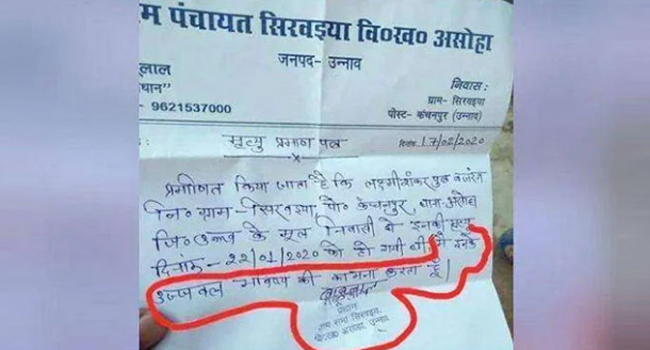 म पंचायत सिरवइया वि०ख० असोहा
जनपद- उन्नाव
लाल
धान”
- 9621537000
निवास :
ग्राम- सिरवइया
पोस्ट- कंचनपुर (उन्नाव)
मृत्यु प्रमाण पत्र
दिनांक 17/02/2020
प्रमाणित किया जाता है कि लक्ष्मीशंकर पुत्र बजरंग
नि० ग्राम-सिरवइया, पो० कंचनपुर, थाना-असोहा
जि० उन्नाव के मूल निवासी थे इनकी मृत्यु
दिनांक- 22/01/2020 को हो गयी थी। मैं इनके
उज्जवल भविष्य की कामना करता हूँ।
प्रधान
ग्राम सभा सिरवइया
वि०ख० असोहा, उन्नाव